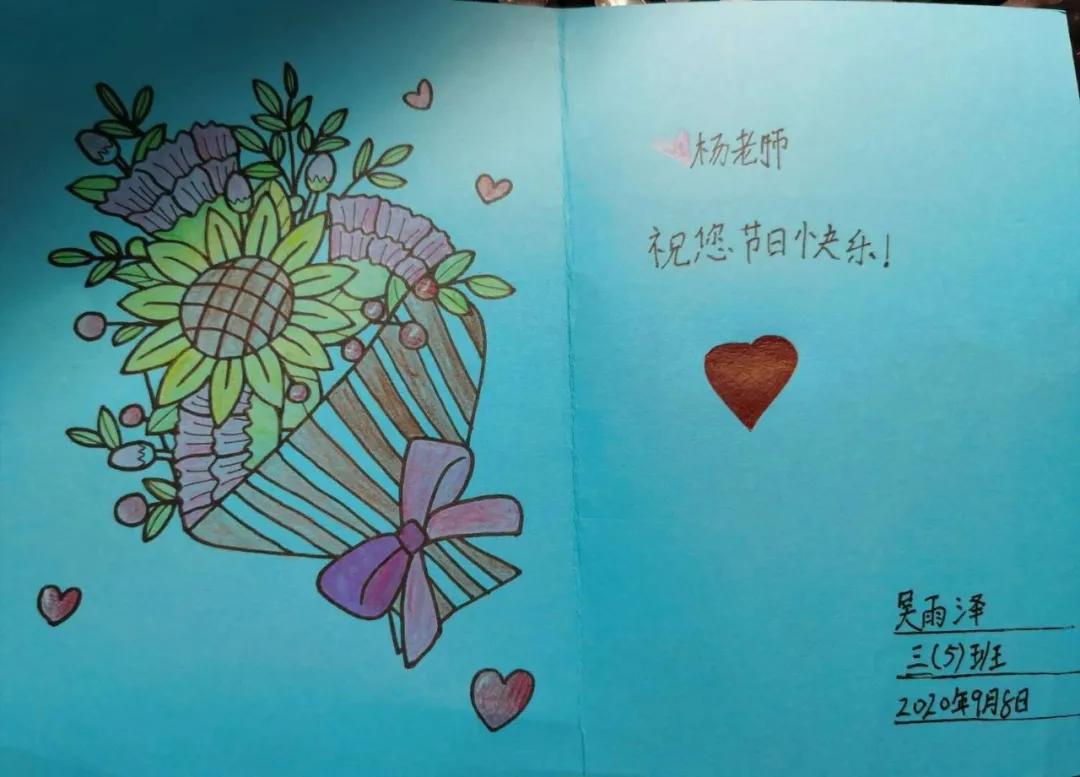 杨老师
祝您节日快乐!
吴雨泽
三(5)班
2020年9月8日